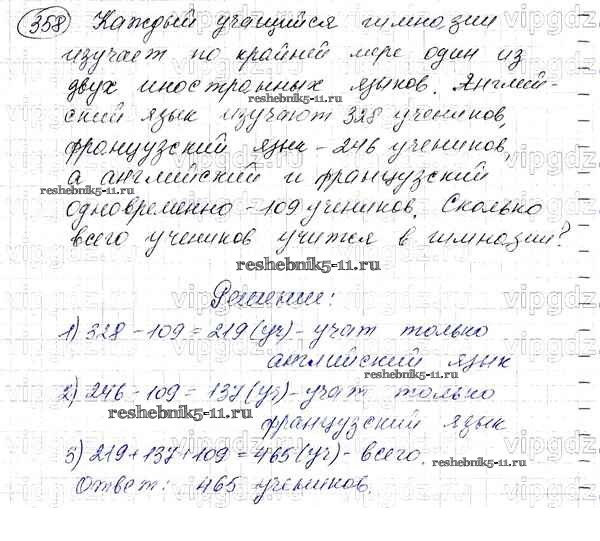 358 Каждый учащийся гимназии
изучает по крайней мере один из
двух иностранных языков. Англий-
ский язык изучают 328 учеников,
французский язык - 246 учеников,
а английский и французский
одновременно - 109 учеников. Сколько
всего учеников учится в гимназии?
Решение:
1) 328 - 109 = 219 (уч) - учат только
английский язык
2) 246 - 109 = 137 (уч) - учат только
французский язык
3) 219 + 137 + 109 = 465 (уч) - всего.
Ответ: 465 учеников.
reshebnik5-11.ru
reshebnik5-11.ru
reshebnik5-11.ru
reshebnik5-11.ru
reshebnik5-11.ru
reshebnik5-11.ru
vipgdz